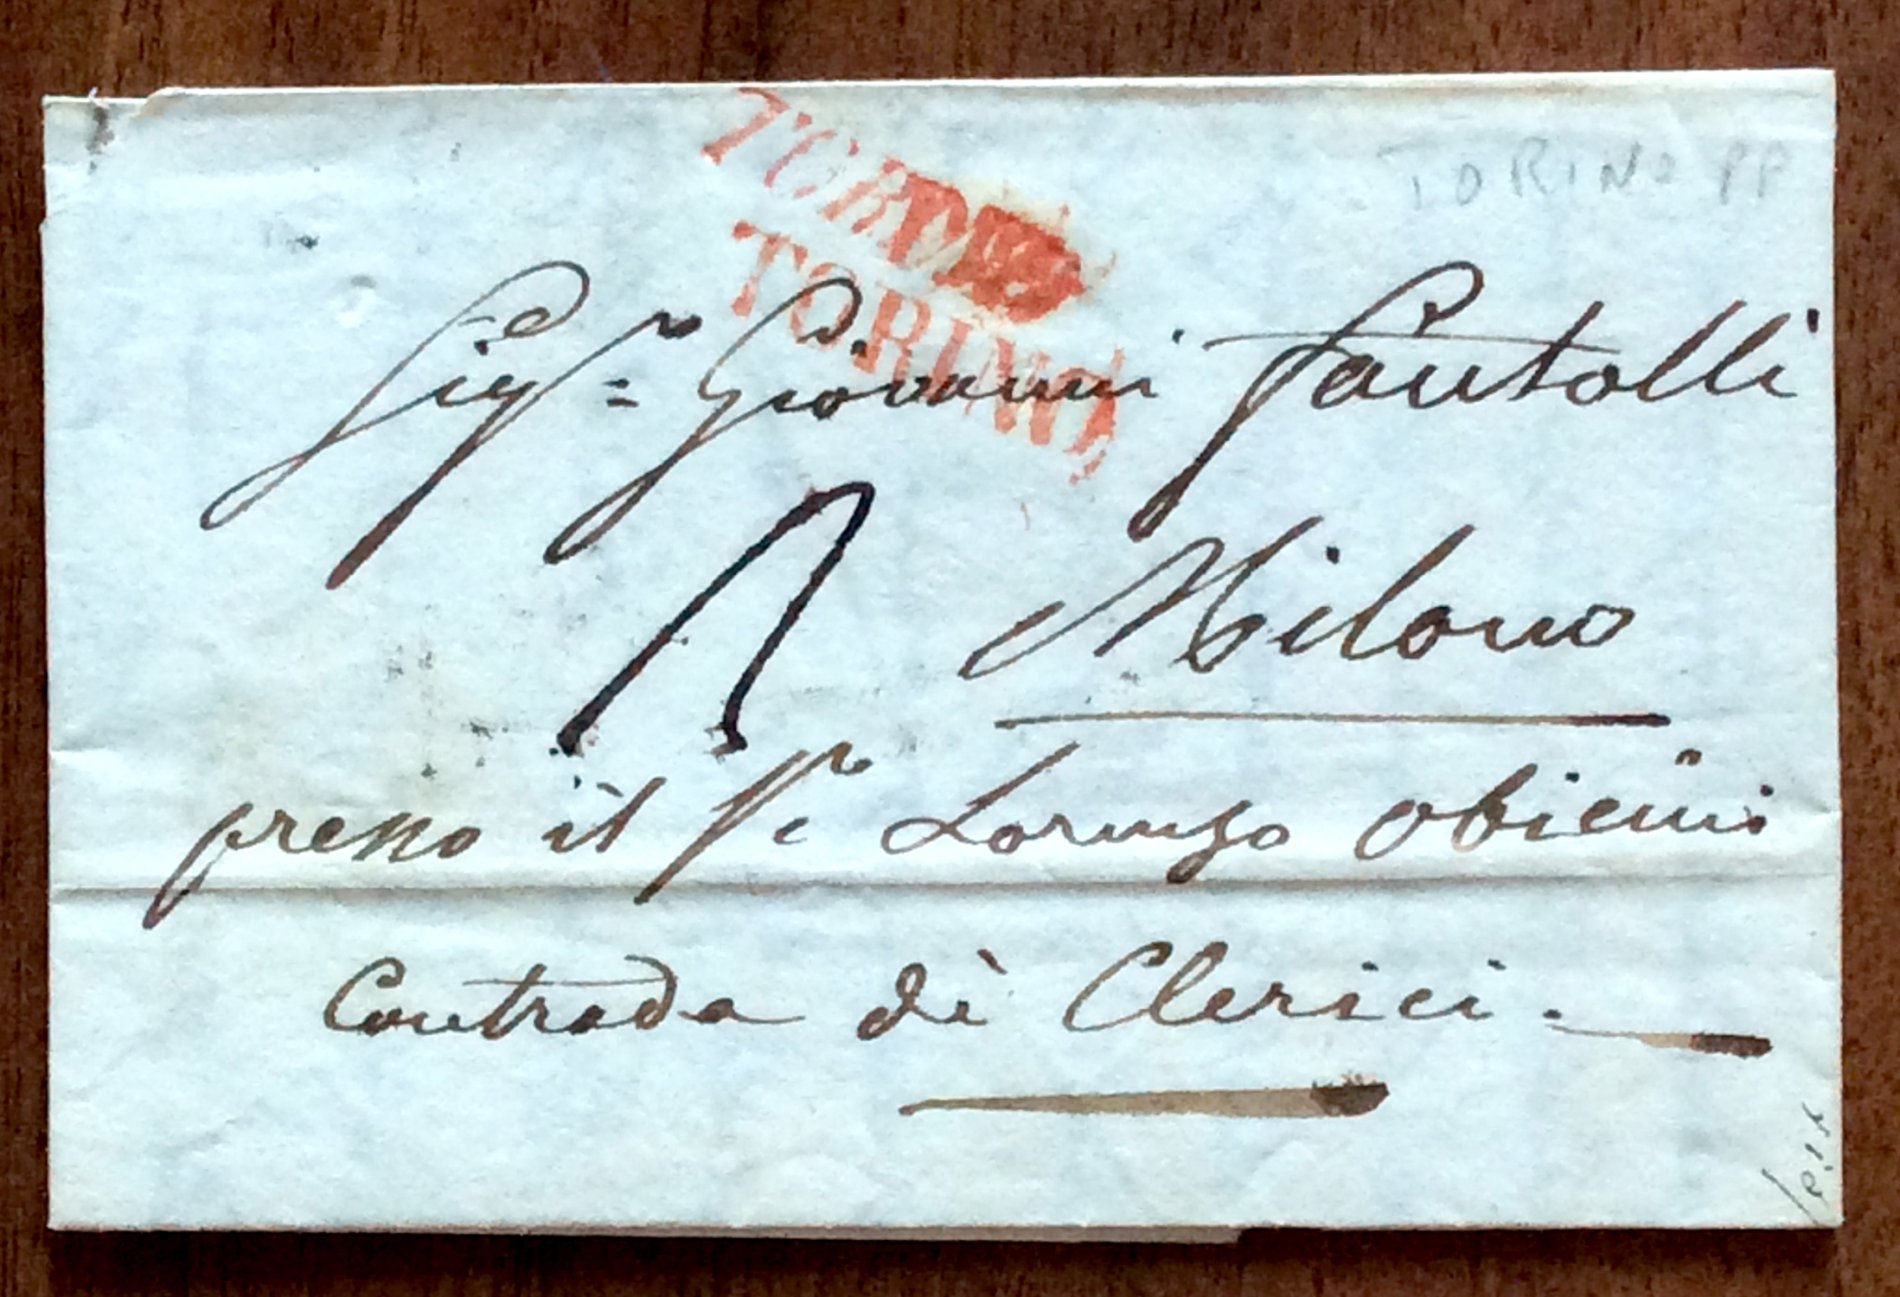 TORINO
TORINO
TORINO PP
Sig.r Giovanni Fantolli
Milano
presso il Sr Lorenzo
Contrada dè Clerici.